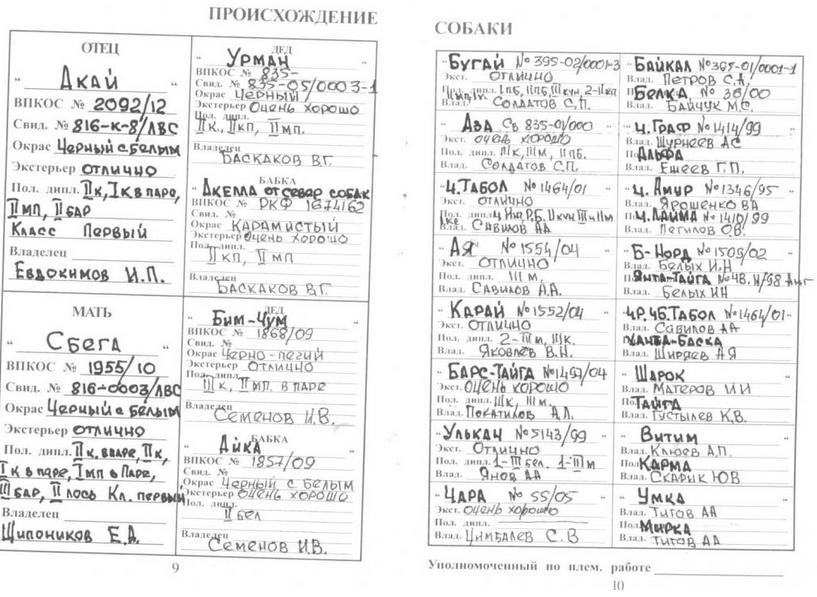 ПРОИСХОЖДЕНИЕ
ОТЕЦ
" Акай "
ВПКОС № 2092/12
Свид. № 816-к-8/ЛВС
Окрас Черный с белым
Экстерьер отлично
Пол. дипл. IIк, Iк в паре,
IIмп, II бар
Класс Первый
Владелец
Евдокимов И.П.
ДЕД
" Урман "
ВПКОС № 835-
Свид. № 835-05/0003-1
Окрас Черный
Экстерьер Очень хорошо
Пол. дипл.
IIк., IIкп, IIмп.
Владелец
Баскаков В.Г.
БАБКА
Акелла от севар собак
ВПКОС № РКФ 1674162
Свид. №
Окрас Карамистый
Экстерьер Очень хорошо
Пол. дипл.
IIкп, IIмп
Владелец
Баскаков В.Г.
МАТЬ
" Сбега "
ВПКОС № 1955/10
Свид. № 816-0003/ЛВС
Окрас Черный с белым
Экстерьер отлично
Пол. дипл. IIк. в паре, IIк,
Iк в паре, Iмп в Паре,
III бар, II лось Кл. первый
Владелец
Щипоников Е.А.
ДЕД
" Бим-Чум "
ВПКОС № 1868/09
Свид. №
Окрас Черно-пегий
Экстерьер Отлично
Пол. дипл.
IIIк, IIмп. в паре
Владелец
Семенов И.В.
БАБКА
" Айка "
ВПКОС № 1857/09
Свид. №
Окрас Черный с белым
Экстерьер Очень хорошо
Пол. дипл.
II бел
Владелец
Семенов И.В.
9
СОБАКИ
"Бугай № 395-02/0001-3
Экст. Отлично
Влад. Солдатов С.П.
"Байкал №395-01/0001-1
Влад. Петров С.А.
Белка № 36/00
Влад. Байчук М.С.
" Аза Св 835-01/000
Экст. Очень хорошо
Пол. дипл. IIIк, IIIм, II пб.
Влад. Солдатов С.П.
"Ч.Граф №1414/99
Влад. Шурнеев АС
Альфа
Влад. Ешеев Г.П.
"Ч.Табол №1464/01
Экст. Отлично
Влад. Савилов АА
"Ч. Амур №1346/95
Влад. Ярошенко ВА
Ч.Лайма №1410/99
Влад. Петилов О.В.
" Ая № 1554/04
Экст. Отлично
Пол. дипл. III м.
Влад. Савилов А.А.
"Б-Норд №1509/02
Влад. Белых И.Н
Янта-Тайга №ЧВ.Н/98 Анг
Влад. Белых ИН
" Карай №1552/04
Экст. Отлично
Пол. дипл. 2-IIIм, IIIк.
Влад. Яковлев В.Н.
"ЧР.ЧБ.Табол №1464/01"
Влад. Савилов АА
Ханта-Баска
Влад. Ширяев АЯ
"Барс-Тайга №1457/04
Экст. Очень хорошо
Пол. дипл. IIIк, IIIм.
Влад. Покатилов А.Л.
" Шарок "
Влад. Матеров ИИ
Тайга
Влад. Густылев К.В.
"Улькан №5143/99
Экст. Отлично
Пол. дипл. 1-III бел. 1-IIIм
Влад. Янов АА
" Витим "
Влад. Клюев А.П.
Карма
Влад. Скарик ЮВ
" Чара № 55/05
Экст. Очень хорошо
Пол. дипл.
Влад. Чимбалев С.В
" Умка "
Влад. Титов АА
Мирка
Влад. Титов АА
Уполномоченный по плем. работе
10